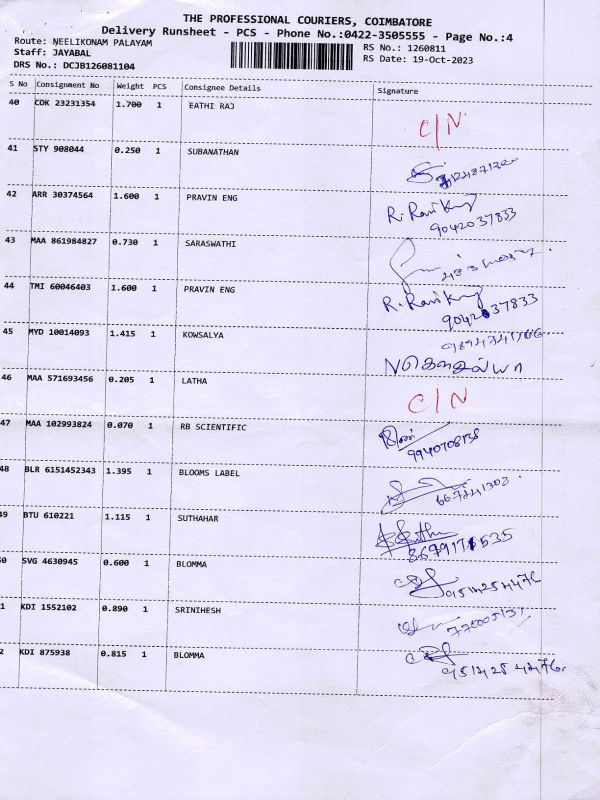 THE PROFESSIONAL COURIERS, COIMBATORE
Delivery Runsheet - PCS - Phone No.:0422-3505555 - Page No.:4
Route: NEELIKONAM PALAYAM
RS No.: 1260811
Staff: JAYABAL
RS Date: 19-Oct-2023
DRS No.: DCJB126081104
S No Consignment No Weight PCS Consignee Details Signature
40 COK 23231354 1.700 1 EATHI RAJ C/N
41 STY 908044 0.250 1 SUBANATHAN
42 ARR 30374564 1.600 1 PRAVIN ENG R. Ravi Kumar
9042037833
43 MAA 861984827 0.730 1 SARASWATHI
44 TMI 60046403 1.600 1 PRAVIN ENG R. Ravi Kumar
9042037833
45 MYD 10014093 1.415 1 KOWSALYA
N கௌசல்யா
46 MAA 571693456 0.205 1 LATHA C/N
47 MAA 102993824 0.070 1 RB SCIENTIFIC
9940708138
48 BLR 6151452343 1.395 1 BLOOMS LABEL
49 BTU 610221 1.115 1 SUTHAHAR
50 SVG 4630945 0.600 1 BLOMMA
1 KDI 1552102 0.890 1 SRINIHESH
2 KDI 875938 0.815 1 BLOMMA